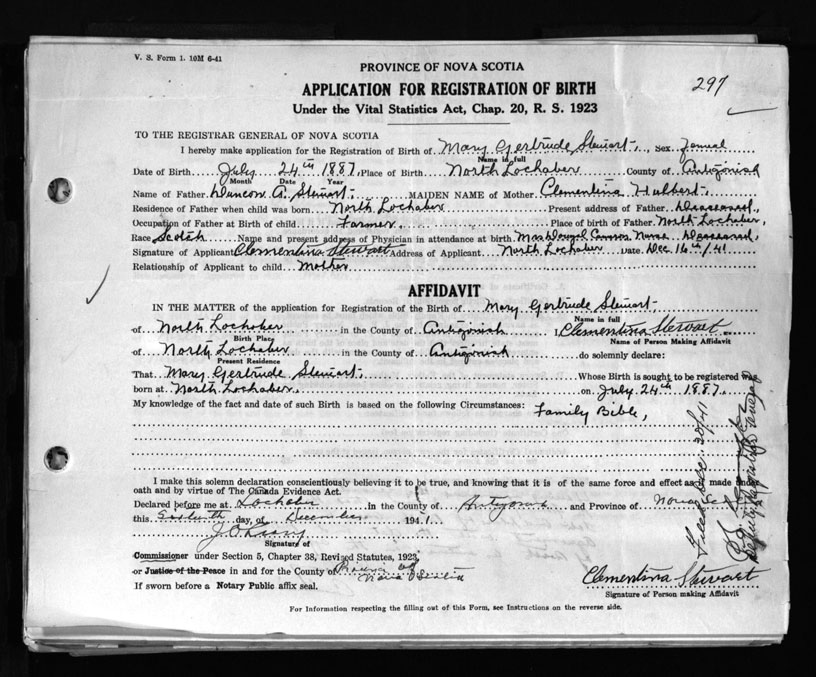 V. S. Form 1. 10M 6-41
PROVINCE OF NOVA SCOTIA
297
APPLICATION FOR REGISTRATION OF BIRTH
Under the Vital Statistics Act, Chap. 20, R. S. 1923
TO THE REGISTRAR GENERAL OF NOVA SCOTIA
I hereby make application for the Registration of Birth of Mary Gertrude Stewart, Sex Femeal
Name in full
Date of Birth July 24th 1887, Place of Birth North Lochaber County of Antigonish
Month Date Year
Name of Father Duncan A. Stewart. MAIDEN NAME of Mother Clementina Hubbert.
Residence of Father when child was born North Lochaber Present address of Father Deceased,
Occupation of Father at Birth of child Farmer. Place of birth of Father North Lochaber,
Race Scotch Name and present address of Physician in attendance at birth Nurse Deceased,
Signature of Applicant Clementina Stewart Address of Applicant North Lochaber Date Dec 16th/41
Relationship of Applicant to child Mother
AFFIDAVIT
IN THE MATTER of the application for Registration of the Birth of Mary Gertrude Stewart.
Name in full
of North Lochaber in the County of Antigonish I, Clementina Stewart
Birth Place Name of Person Making Affidavit
of North Lochaber in the County of Antigonish do solemnly declare:
Present Residence
That Mary Gertrude Stewart. Whose Birth is sought to be registered was
born at North Lochaber. on July 24th 1887.
My knowledge of the fact and date of such Birth is based on the following Circumstances: Family Bible,
I make this solemn declaration conscientiously believing it to be true, and knowing that it is of the same force and effect as if made under
oath and by virtue of The Canada Evidence Act.
Declared before me at Lochaber in the County of Antigonish and Province of Nova Scotia
this Sixteenth day of December 1941.
Signature of
Commissioner under Section 5, Chapter 38, Revised Statutes, 1923,
or Justice of the Peace in and for the County of Province of
Nova Scotia
If sworn before a Notary Public affix seal.
Clementina Stewart
Signature of Person making Affidavit
For Information respecting the filling out of this Form, see Instructions on the reverse side.
Filed Dec. 20/41